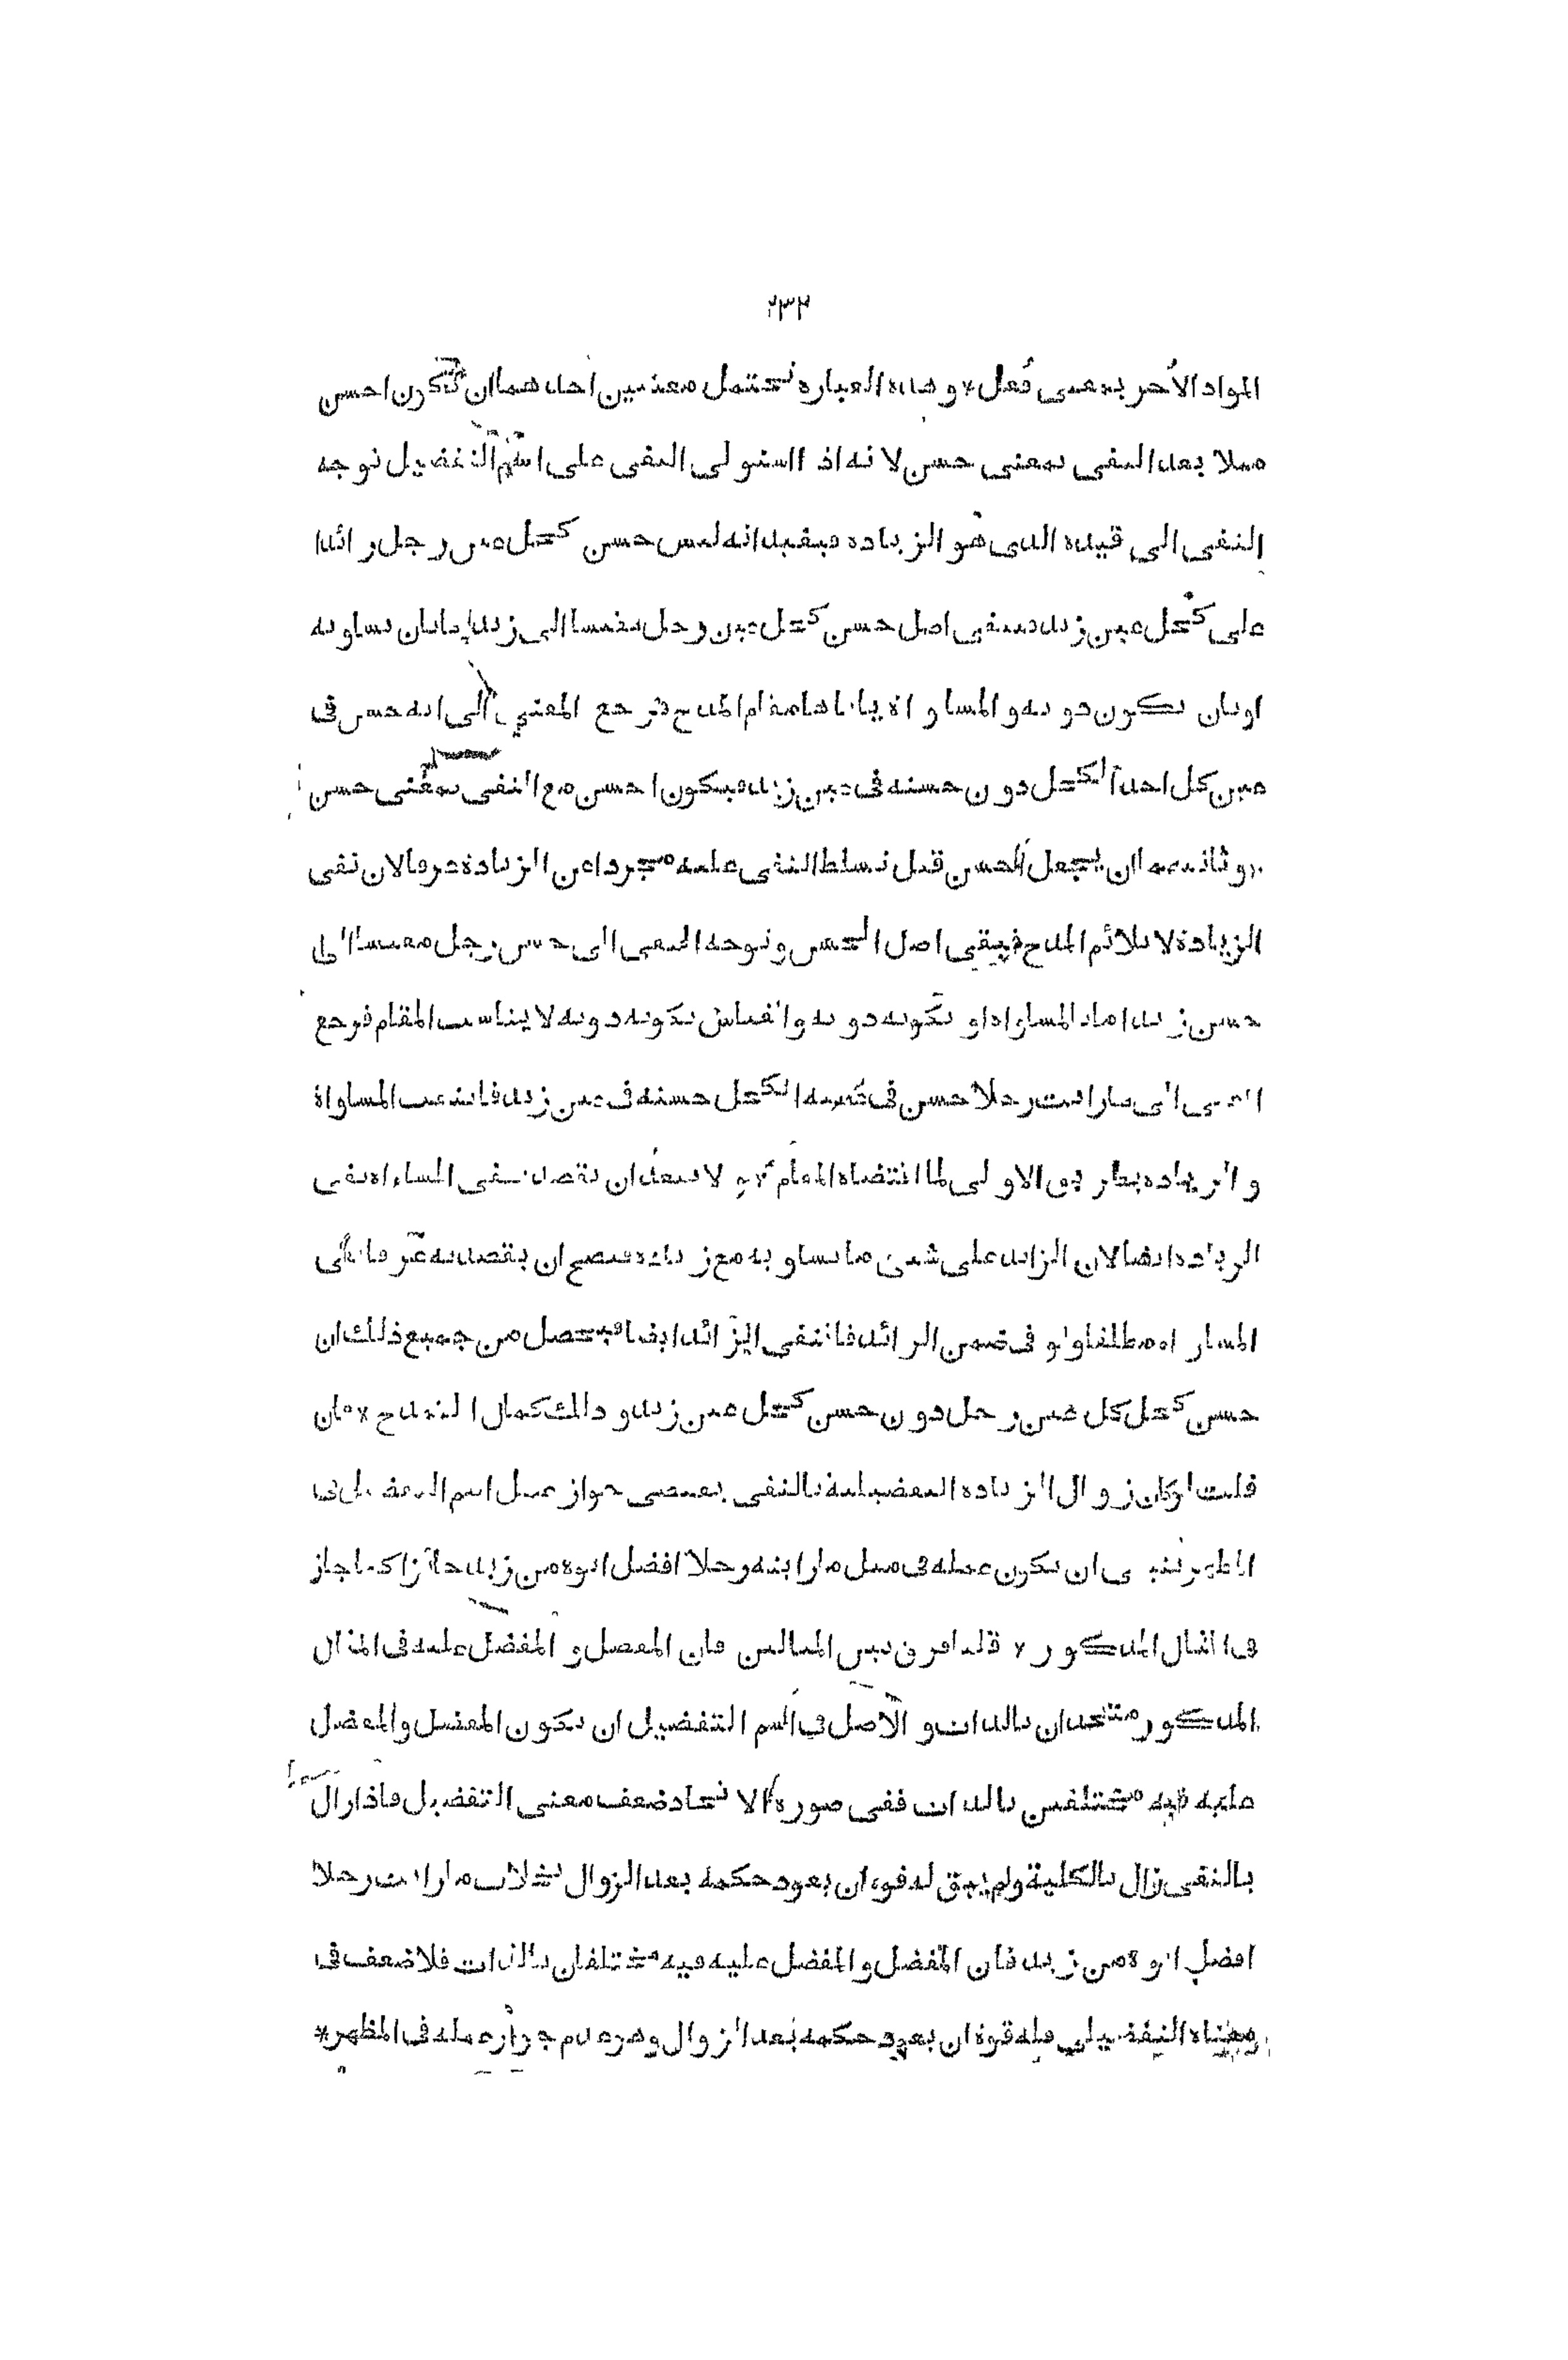 ٢٣٢
المواد الأخر بمعنى فعل * وهذه العبارة تحتمل معنيين احدهما ان تكون احسن
مثلا بعد النفى بمعنى حسن لانه اذا استولى النفى على اسم التفضيل توجه
النفى الى قيده الذى هو الزيادة فيفيد انه ليس حسن كحل عين رجل زائدا
على كحل عين زيد فيبقى اصل حسن كحل عين رجل مقيسا الى زيد اما بان يساويه
او بان يكون دونه والمساواة يأباها مقام المدح فرجع المعنى الى انه حسن فى
عين كل احد الكحل دون حسنه فى عين زيد فيكون احسن مع النفى بمعنى حسن
وثانيهما ان يجعل احسن قبل تسلط النفى عليه مجردا عن الزيادة عرفا لان نفى
الزيادة لا يلائم المدح فيبقى اصل الحسن وتوجه النفى الى حسن رجل مقيسا الى
حسن زيد اما بالمساواة او بكونه دونه والقياس بكونه دونه لا يناسب المقام فرجع
المعنى الى ما رايت رجلا حسن فى عينه الكحل حسنه فى عين زيد فانتفت المساواة
والزيادة بطريق الاولى لما اقتضاه المقام * لا يبعد ان يقصد بنفى المساواة نفى
الزيادة ايضا لان الزائد على شىء ما يساويه مع زيادة فيصح ان يقصد به عرفا نفى
المساواة مطلقا ولو فى ضمن الزائد فانتفى الزائد ايضا فيحصل من جميع ذلك ان
حسن كحل كل عين رجل دون حسن كحل عين زيد وذلك كمال التمدح * فان
قلت لو كان زوال الزيادة التفضيلية بالنفى يقتضى جواز عمل اسم التفضيل فى
المظهر ينبغى ان يكون عمله فى مثل ما رايته رجلا افضل ابوه من زيد جائزا كما جاز
فى المثال المذكور * قلنا فرق بين المثالين فان المفضل والمفضل عليه فى المثال
المذكور متحدان بالذات والاصل فى اسم التفضيل ان يكون المفضل والمفضل
عليه فيه مختلفين بالذات ففى صورة الاتحاد ضعف معنى التفضيل فاذا زال
بالنفى زال بالكلية ولم يبق له قوة ان يعود حكمه بعد الزوال بخلاف ما رايت رجلا
افضل ابوه من زيد فان المفضل والمفضل عليه فيه مختلفان بالذات فلا ضعف فى
معناه التفضيلى فله قوة ان يعود حكمه بعد الزوال وهو عدم جواز عمله فى المظهر *